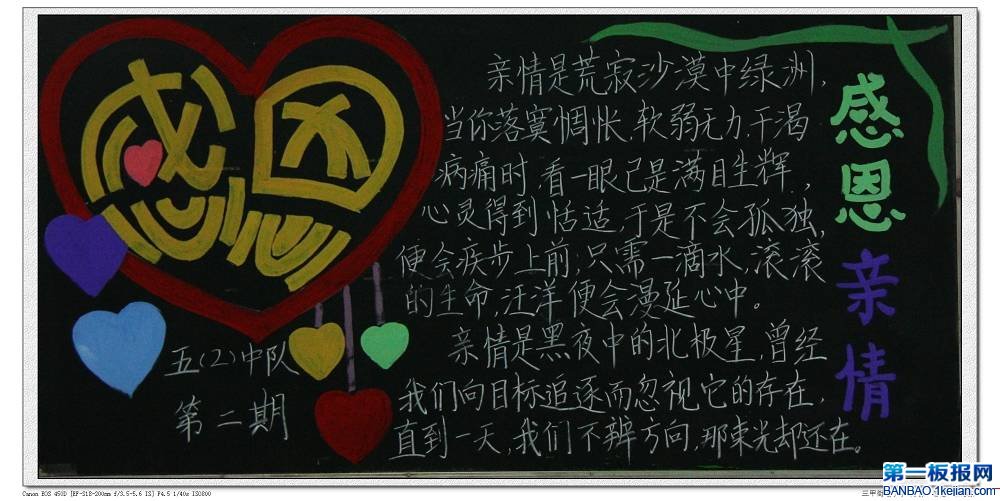 感恩
亲情是荒寂沙漠中绿洲,
当你落寞惆怅,软弱无力,干渴
病痛时,看一眼已是满目生辉,
心灵得到恬适,于是不会孤独,
便会疾步上前,只需一滴水,滚滚
的生命,汪洋便会漫延心中。
亲情是黑夜中的北极星,曾经
我们向目标追逐而忽视它的存在,
直到一天,我们不辨方向,那束光却还在。
感恩亲情
五(2)中队
第二期
第一板报网
BANBAO.1kejian.com
Canon EOS 450D [EF-S18-200mm f/3.5-5.6 IS] F4.5 1/40s ISO800